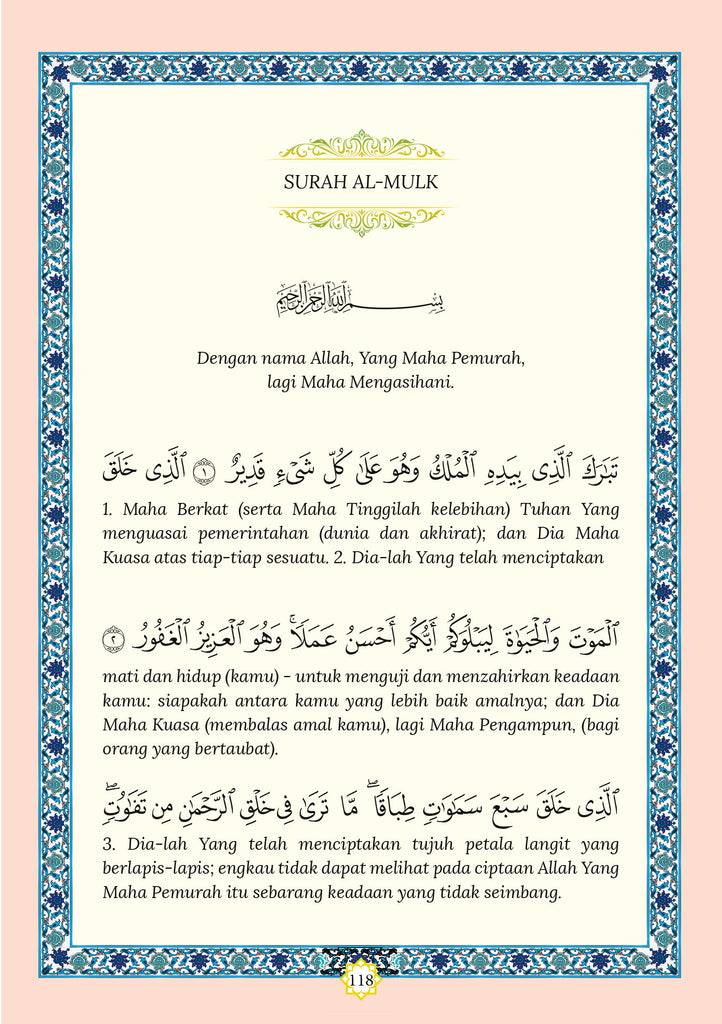 SURAH AL-MULK
بِسْمِ ٱللَّهِ ٱلرَّحْمَٰنِ ٱلرَّحِيمِ
Dengan nama Allah, Yang Maha Pemurah,
lagi Maha Mengasihani.
تَبَٰرَكَ ٱلَّذِى بِيَدِهِ ٱلْمُلْكُ وَهُوَ عَلَىٰ كُلِّ شَىْءٍ قَدِيرٌ ١ ٱلَّذِى خَلَقَ
1. Maha Berkat (serta Maha Tinggilah kelebihan) Tuhan Yang
menguasai pemerintahan (dunia dan akhirat); dan Dia Maha
Kuasa atas tiap-tiap sesuatu. 2. Dia-lah Yang telah menciptakan
ٱلْمَوْتَ وَٱلْحَيَوٰةَ لِيَبْلُوَكُمْ أَيُّكُمْ أَحْسَنُ عَمَلًا ۚ وَهُوَ ٱلْعَزِيزُ ٱلْغَفُورُ ٢
mati dan hidup (kamu) - untuk menguji dan menzahirkan keadaan
kamu: siapakah antara kamu yang lebih baik amalnya; dan Dia
Maha Kuasa (membalas amal kamu), lagi Maha Pengampun, (bagi
orang yang bertaubat).
ٱلَّذِى خَلَقَ سَبْعَ سَمَٰوَٰتٍ طِبَاقًا ۖ مَّا تَرَىٰ فِى خَلْقِ ٱلرَّحْمَٰنِ مِن تَفَٰوُتٍ ۖ
3. Dia-lah Yang telah menciptakan tujuh petala langit yang
berlapis-lapis; engkau tidak dapat melihat pada ciptaan Allah Yang
Maha Pemurah itu sebarang keadaan yang tidak seimbang.
118